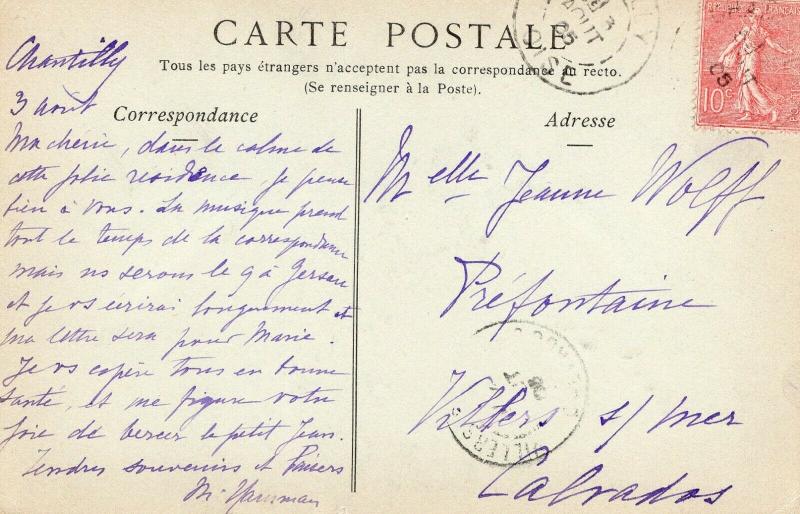 CARTE POSTALE
Tous les pays étrangers n'acceptent pas la correspondance au recto.
(Se renseigner à la Poste).
Correspondance
Chantilly
3 août
Ma chérie, dans le calme de
cette jolie residence, je pense
bien à vous. La musique prend
tout le temps de la correspondance
mais ns serons le 9 à Gersau
et je vs écrirai longuement et
ma lettre sera pour Marie.
Je vs espère tous en bonne
santé, et me figure votre
joie de bercer le petit Jean.
Tendres souvenirs et baisers
M.
Adresse
Melle Jeanne Wolff
Préfontaine
Villers s/ mer
Calvados
OISE
3
AOUT
05
10c
VILLERS